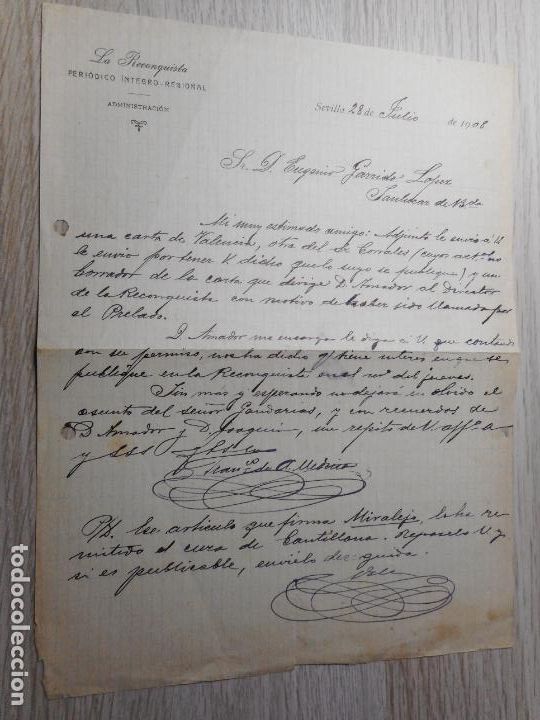 La Reconquista
PERIÓDICO INTEGRO-REGIONAL
ADMINISTRACIÓN
Sevilla 28 de Julio de 1908
Sr. D. Eugenio Garrido Lopez
Sanlucar de Bda
Mi muy estimado amigo: Adjunto le envio á V
una carta de Valencia, otra del Sr Corrales (cuyo
le envio por tener V dicho que lo suyo se publique) y un
borrador de la carta que dirige D. Amador al director
de la Reconquista con motivo de haber sido llamado por
el Prelado.
D. Amador me encarga le diga á V. que contando
con su permiso, nos ha dicho q/ tiene interes en que se
publique en la Reconquista en el nº del jueves.
Sin mas y esperando no dejará en olvido el
asunto del señor Gandarias, y con recuerdos de
D Amador y D. Joaquin, me repito de V affmo a
y SSS
Franco de A. Medina
P.D. Ese articulo que firma Miralejo, lo ha re
mitido el cura de Cantillana. Repaselo V y
si es publicable, envielo de seguida.
Vale
todocoleccion